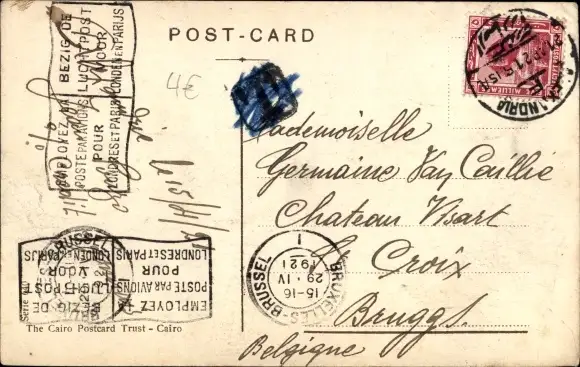 POST-CARD
4€
BEZIG DE
LUCHTPOST
VOOR
LONDEN EN PARIJS
EMPLOYEZ LA
POSTE PAR AVIONS
POUR
LONDRES ET PARIS
ALEXANDRIA
Mademoiselle
Germaine Van Caillie
Chateau Visart
Ste Croix
Bruges.
Belgique
BRUXELLES-BRUSSEL
15-16
29·IV
1921
1
BRUSSEL
EMPLOYEZ LA
POSTE PAR AVIONS
POUR
LONDRES ET PARIS
BEZIG DE
LUCHTPOST
VOOR
LONDEN EN PARIJS
Serie
The Cairo Postcard Trust - Cairo